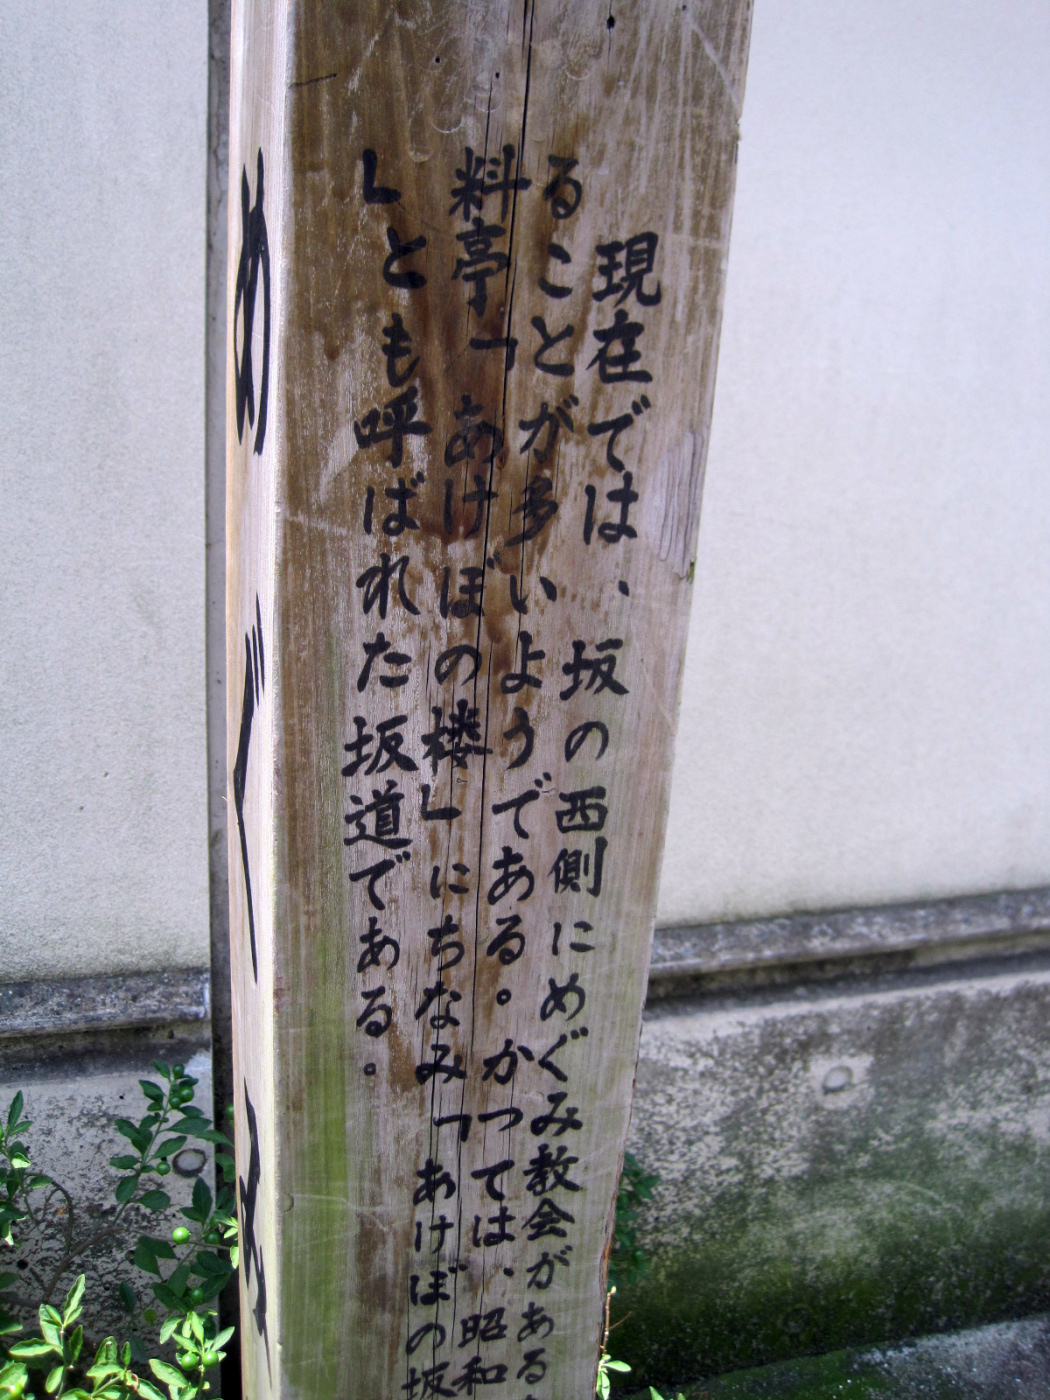 現在では、坂の西側にめぐみ教会がある
ることが多いようである。かつては、昭和
料亭「あけぼの楼」にちなみ「あけぼの坂
」とも呼ばれた坂道である。
めぐみ